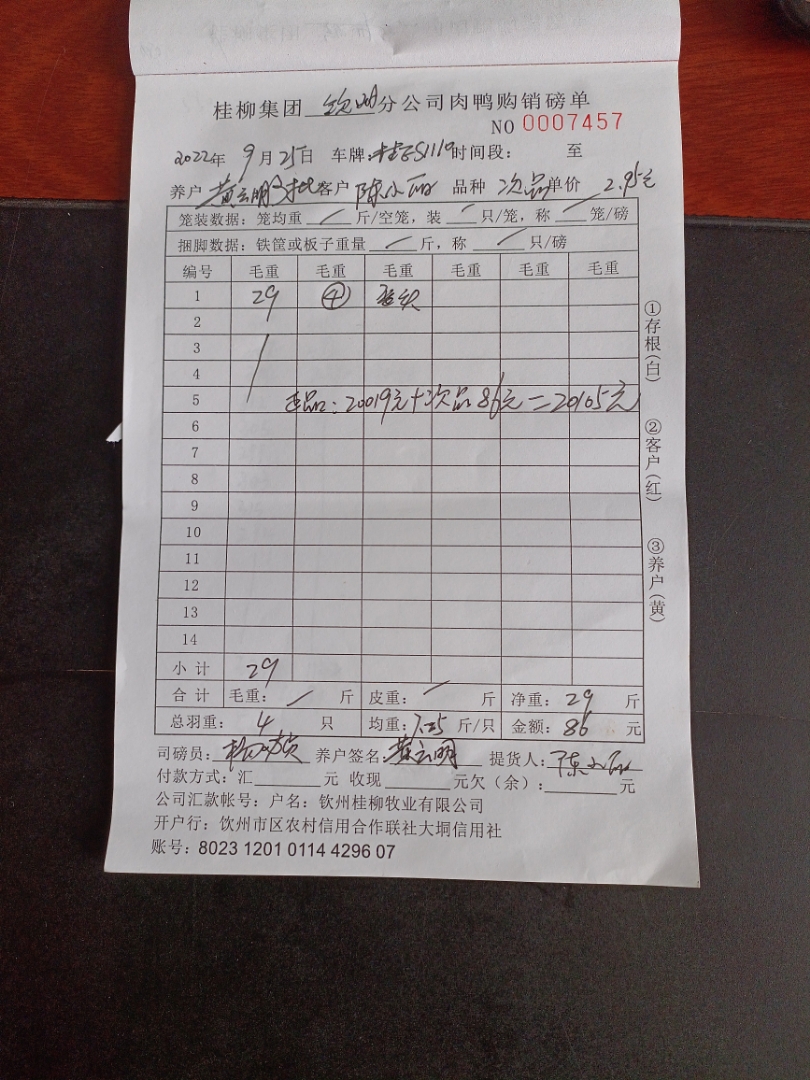 桂柳集团 钦州 分公司肉鸭购销磅单
NO 0007457
2022年 9月25日 车牌: 桂ES1119 时间段: 至
养户 黄云明 客户 陈小丽 品种 次品 单价 2.95元
笼装数据: 笼均重 / 斤/空笼, 装 / 只/笼, 称 / 笼/磅
捆脚数据: 铁筐或板子重量 / 斤, 称 / 只/磅
编号 毛重 毛重 毛重 毛重 毛重 毛重
1 29 ④
2
3
4
5 正品: 20019元+次品86元=20105元
6
7
8
9
10
11
12
13
14
小计 29
合计 毛重: / 斤 皮重: / 斤 净重: 29 斤
总羽重: 4 只 均重: 7.25 斤/只 金额: 86 元
司磅员: 养户签名: 黄云明 提货人: 陈小丽
付款方式: 汇 元 收现 元欠(余): 元
公司汇款帐号: 户名: 钦州桂柳牧业有限公司
开户行: 饮州市区农村信用合作联社大垌信用社
账号: 8023 1201 0114 4296 07
①存根(白)
②客户(红)
③养户(黄)